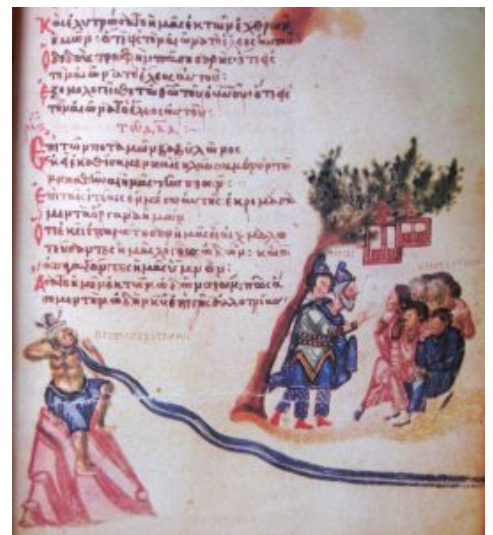 Καὶ ἐλυτρώσατο ἡμᾶς ἐκ τῶν ἐχθρῶν
ἡμῶν· ὅτι εἰς τὸν αἰῶνα τὸ ἔλεος αὐτοῦ
Ὁ διδοὺς τροφὴν πάσῃ σαρκί· ὅτι εἰς
τὸν αἰῶνα τὸ ἔλεος αὐτοῦ:
Ἐξομολογεῖσθε τῷ θω τοῦ οὐνου· ὅτι εἰς
τὸν αἰῶνα τὸ ἔλεος αὐτοῦ:
ΤΩ ΔΑΔ :
Ἐπὶ τῶν ποταμῶν βαβυλῶνος
ἐκεῖ ἐκαθίσαμεν καὶ ἐκλαύσαμεν ἐν τῷ
μνησθῆναι ἡμᾶς τῆς σιών:
Ἐπὶ ταῖς ἰτέαις ἐν μέσῳ αὐτῆς ἐκρεμάσα
μεν τὰ ὄργανα ἡμῶν
Ὅτι ἐκεῖ ἐπηρώτησαν ἡμᾶς οἱ αἰχμαλω
τεύσαντες ἡμᾶς λόγους ᾠδῶν: καὶ οἱ
ἀπαγαγόντες ἡμᾶς ὕμνον:
Ἄσατε ἡμῖν ἐκ τῶν ᾠδῶν σιών: πῶς ᾄ
σωμεν τὴν ᾠδὴν κυ ἐπὶ γῆς ἀλλοτρίας